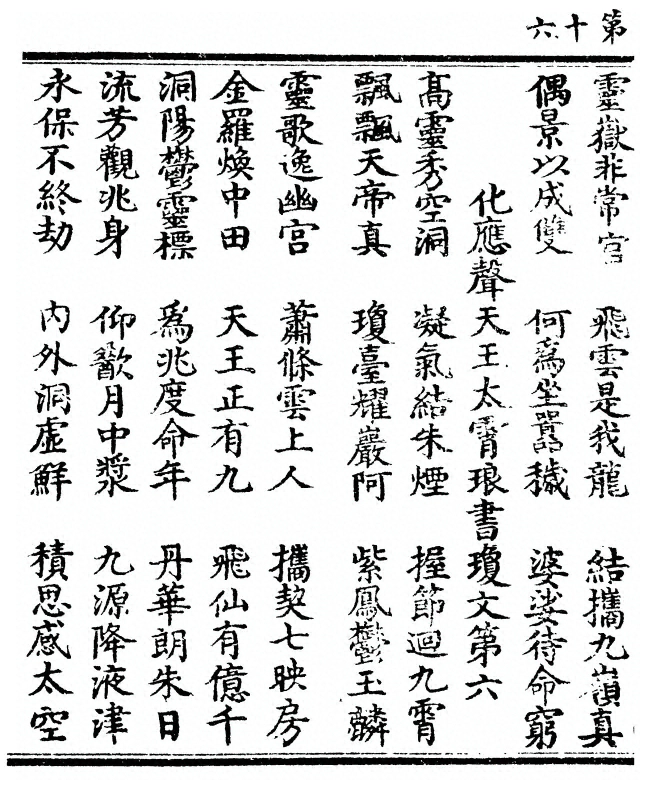 第十六
靈嶽非常宮 飛雲是我龍 結攜九嶺真
偶景以成雙 何爲坐嚻穢 婆娑待命窮
化應聲天王太霄琅書瓊文第六
高靈秀空洞 凝氣結朱煙 握節迴九霄
飄飄天帝真 瓊臺耀巖阿 紫鳳鬱玉麟
靈歌逸幽宮 蕭條雲上人 攜契七映房
金羅煥中田 天王正有九 飛仙有億千
洞陽鬱靈標 爲兆度命年 丹華朗朱日
流芳觀兆身 仰歠月中漿 九源降液津
永保不終劫 内外洞虛鮮 積思感太空